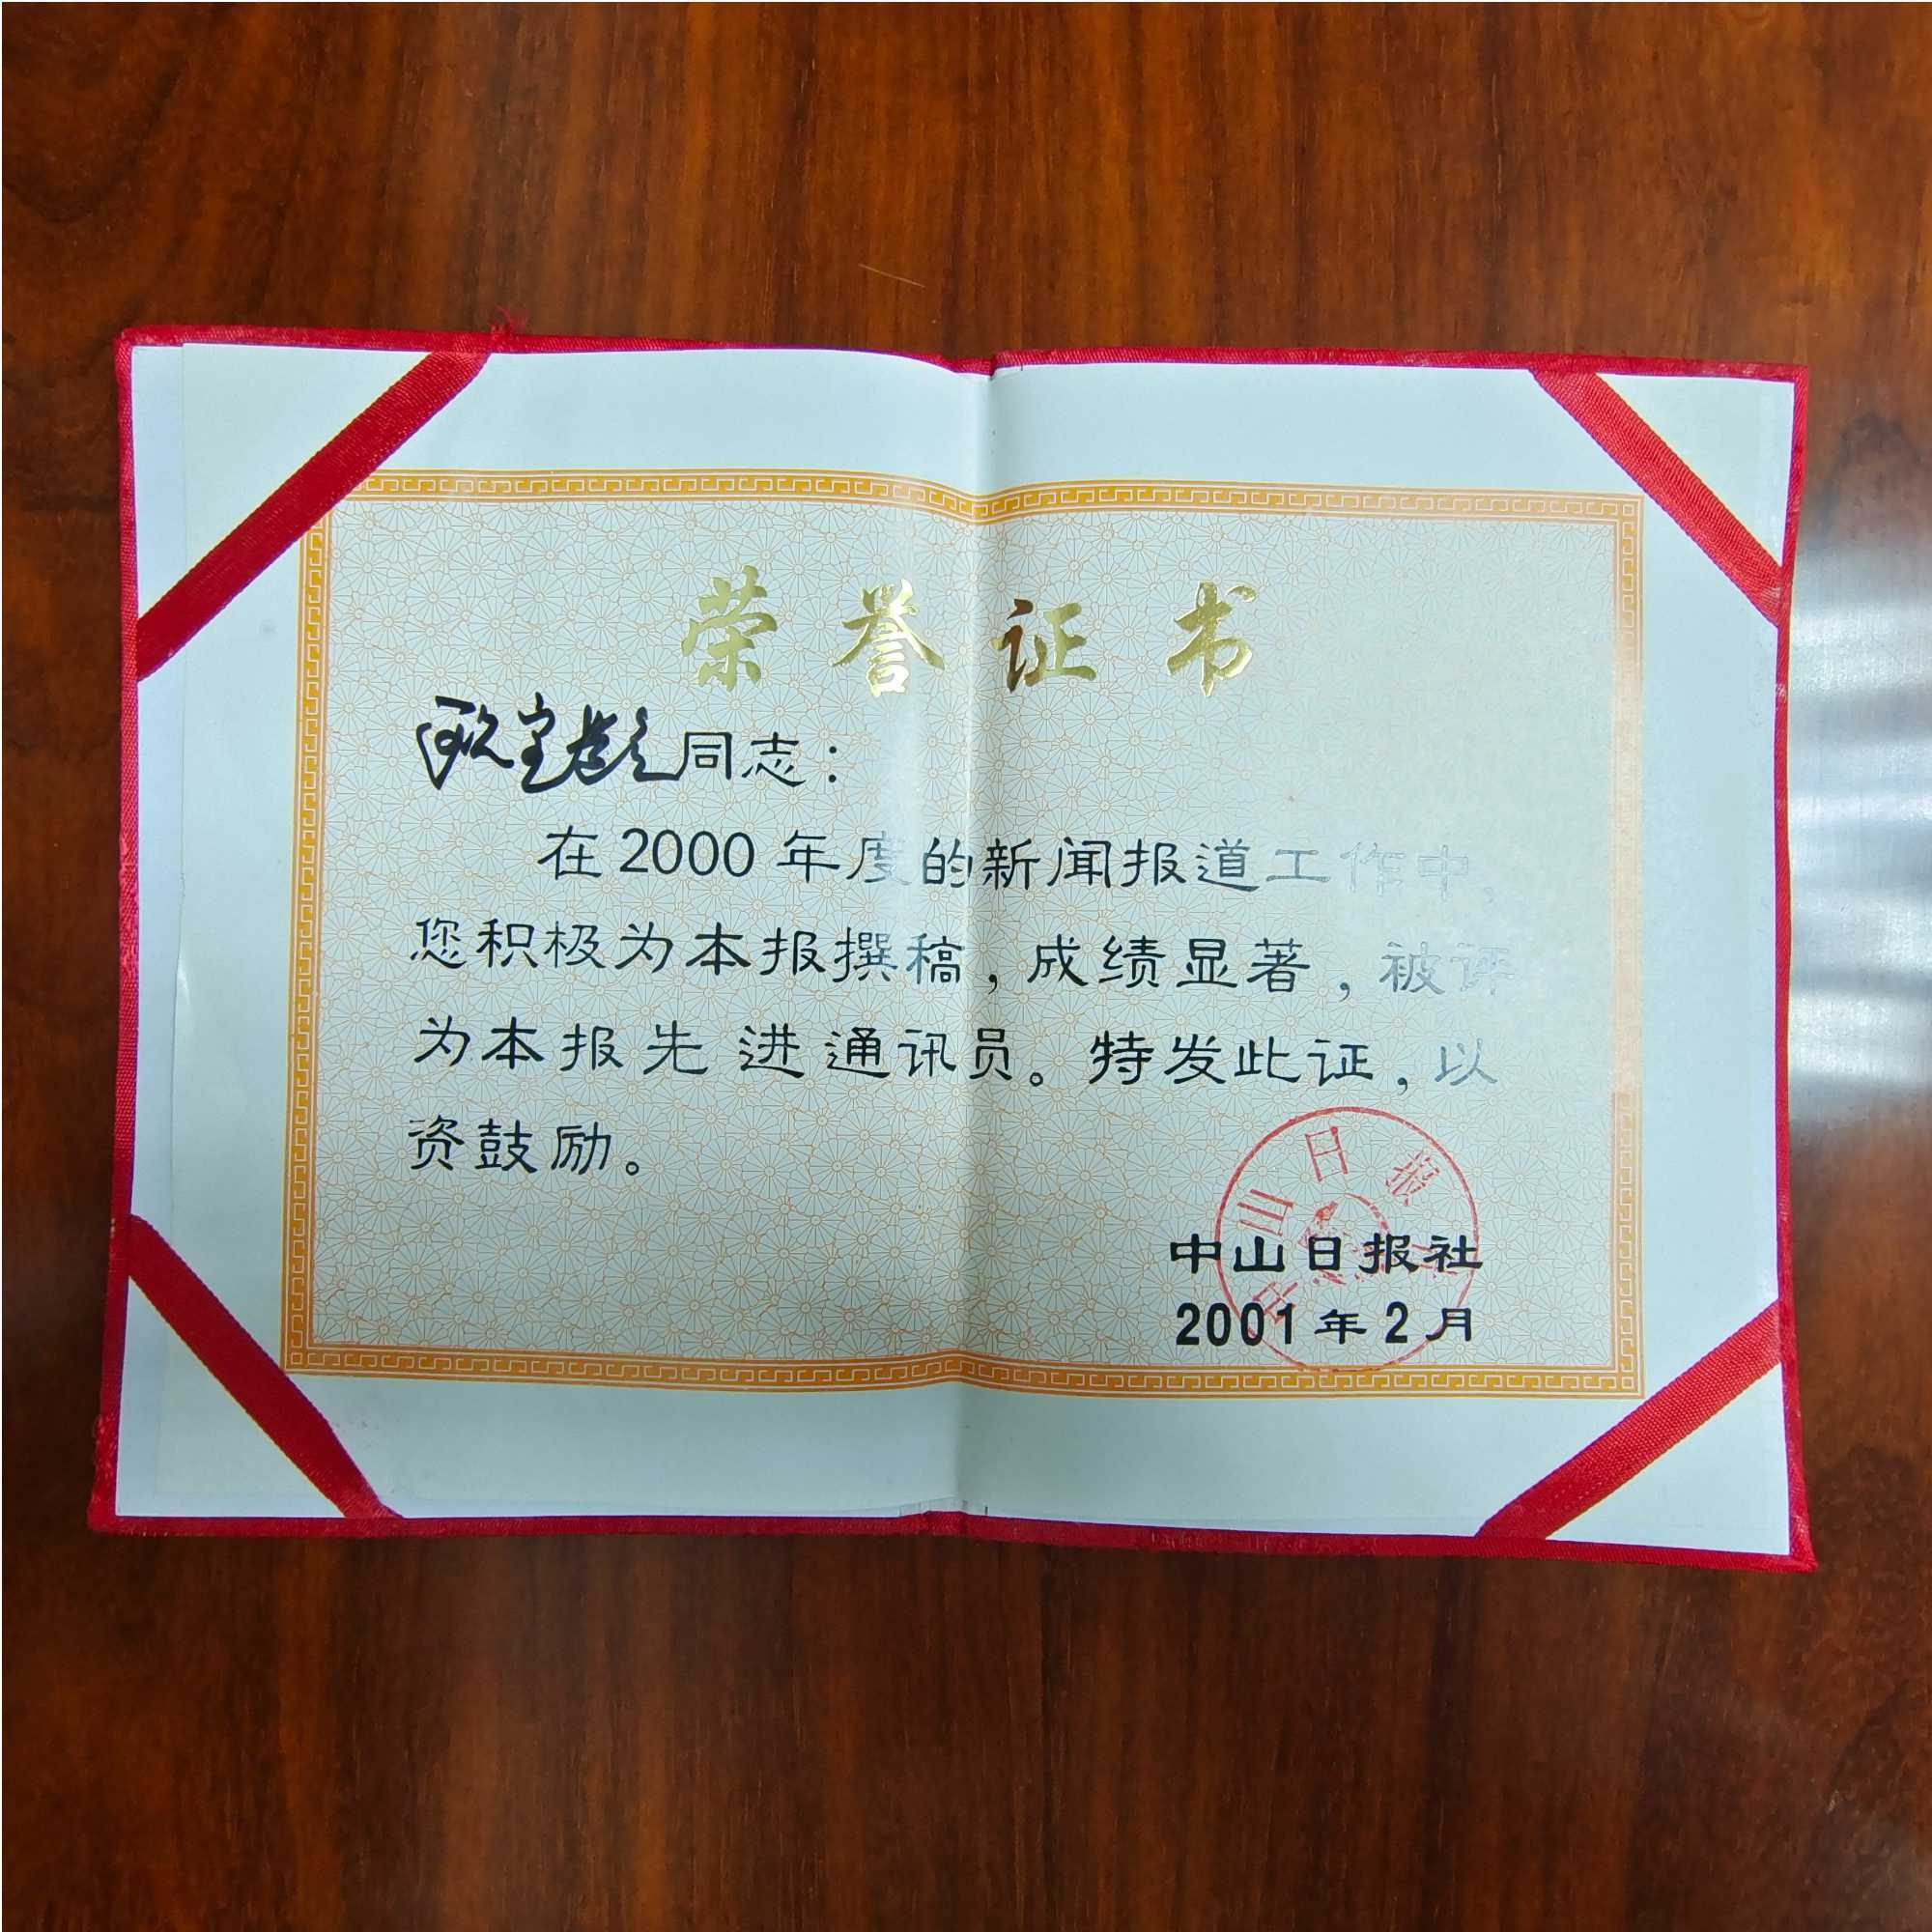 荣誉证书
同志：
在2000年度的新闻报道工作中，
您积极为本报撰稿，成绩显著，被评
为本报先进通讯员。特发此证，以
资鼓励。
中山日报社
2001年2月